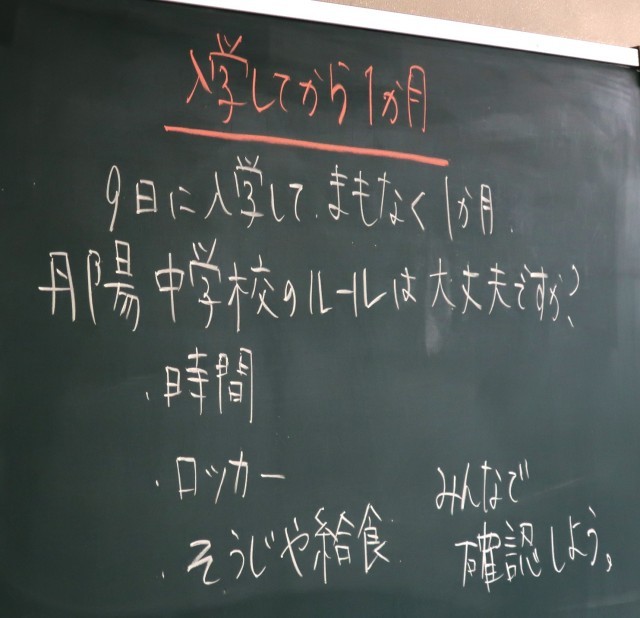 入学してから1か月
9日に入学して、まもなく1か月。
丹陽中学校のルールは大丈夫ですか?
・時間
・ロッカー
・そうじや給食
みんなで
確認しよう。